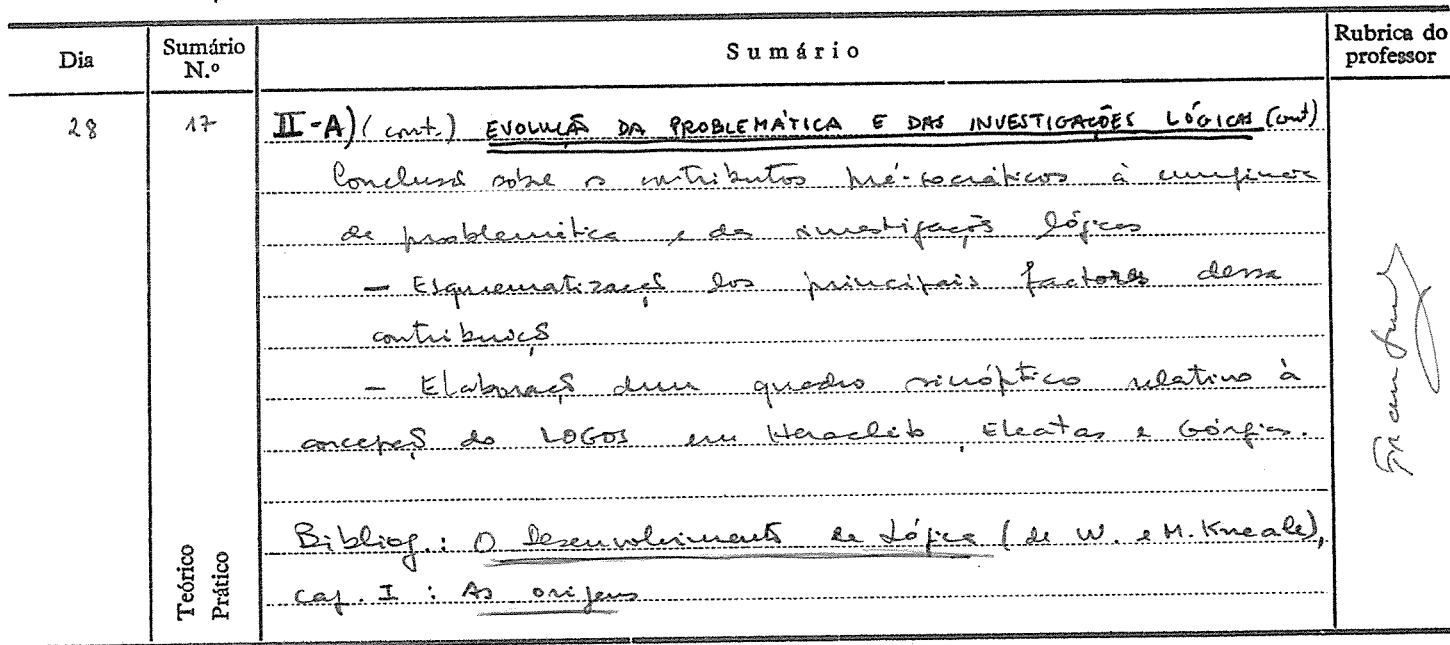 Dia
Sumário N.º
Sumário
Rubrica do professor
28
17
II-A) (cont.) EVOLUÇÃO DA PROBLEMÁTICA E DAS INVESTIGAÇÕES LÓGICAS (cont)
Conclusão sobre os contributos pré-socráticos à
da problemática e das investigações lógicas
— Esquematização dos principais factores dessa
contribuição
— Elaboração dum quadro sinóptico relativo à
concepção do LOGOS em Heraclito, Eleatas e Górgias.
Bibliog.: O Desenvolvimento da Lógica (de W. e M. Kneale),
cap. I : As origens
Teórico
Prático